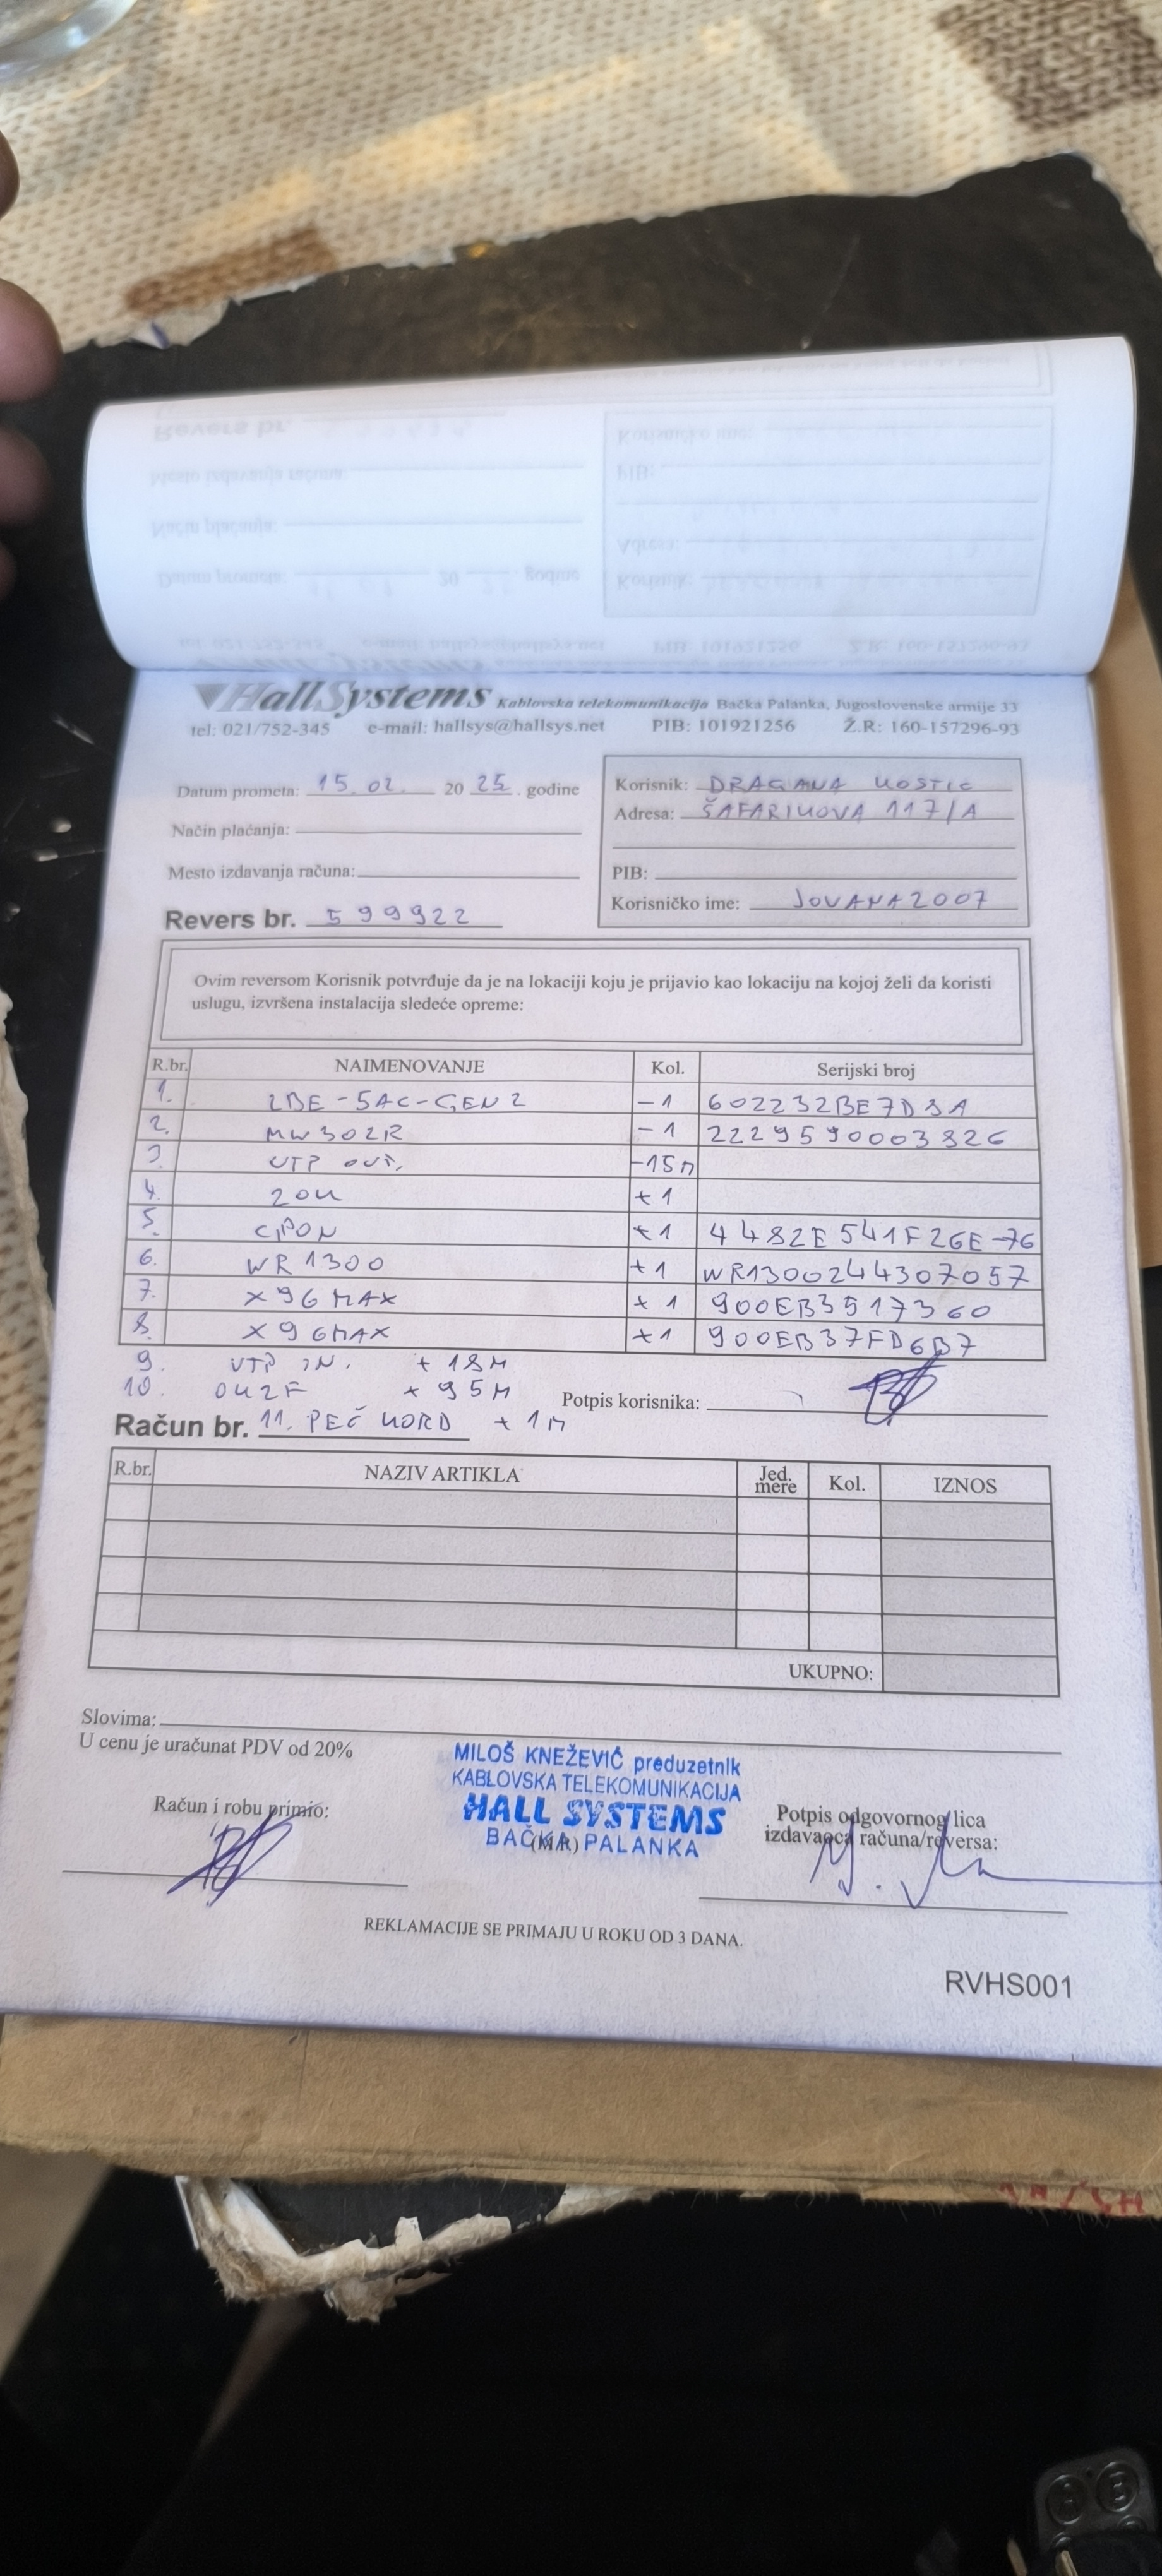 HallSystems Kablovska telekomunikacija Bačka Palanka, Jugoslovenske armije 33
tel: 021/752-345 e-mail: hallsys@hallsys.net PIB: 101921256 Ž.R: 160-157296-93
Datum prometa: 15.02. 20 25. godine
Način plaćanja:
Mesto izdavanja računa:
Revers br. 599922
Korisnik: DRAGANA KOSTIĆ
Adresa: ŠAFARIKOVA 117/A
PIB:
Korisničko ime: JOVANA2007
Ovim reversom Korisnik potvrđuje da je na lokaciji koju je prijavio kao lokaciju na kojoj želi da koristi
uslugu, izvršena instalacija sledeće opreme:
R.br. NAIMENOVANJE Kol. Serijski broj
1. LBE-5AC-GEN2 -1 602232BE7D8A
2. MW302R -1 2229590003826
3. UTP OUT. -15M
4. ZOK +1
5. GPON +1 4482E541F26E-76
6. WR1300 +1 WR1300244307057
7. X96MAX +1 900EB3517360
8. X96MAX +1 900EB37FD6B7
9. UTP IN. +18M
10. OK2F +95M
Potpis korisnika:
Račun br. 11. PEČ KORD +1M
R.br. NAZIV ARTIKLA Jed. mere Kol. IZNOS
UKUPNO:
Slovima:
U cenu je uračunat PDV od 20%
MILOŠ KNEŽEVIĆ preduzetnik
KABLOVSKA TELEKOMUNIKACIJA
HALL SYSTEMS
BAČKA PALANKA
(M.P.)
Račun i robu primio:
Potpis odgovornog lica
izdavaoca računa/reversa:
REKLAMACIJE SE PRIMAJU U ROKU OD 3 DANA.
RVHS001